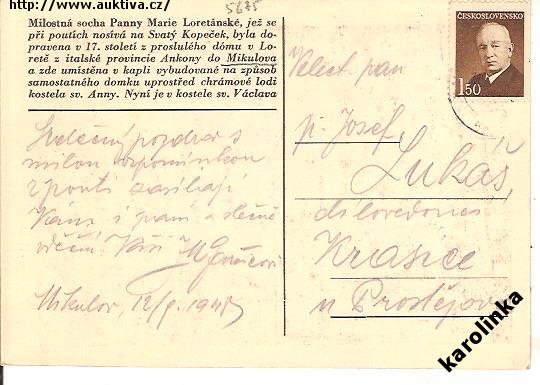 http://www.auktiva.cz/
5675
Milostná socha Panny Marie Loretánské, jež se
při poutích nosívá na Svatý Kopeček, byla do-
pravena v 17. století z proslulého dómu v Lo-
retě z italské provincie Ankony do Mikulova
a zde umístěna v kapli vybudované na způsob
samostatného domku uprostřed chrámové lodi
kostela sv. Anny. Nyní je v kostele sv. Václava
ČESKOSLOVENSKO
1.50
Velect. pan
p. Josef
Lukáš,
dílovedoucí
Krasice
u Prostějova
Srdečný pozdrav s
milou vzpomínkou
z pouti zasílají
Vám i paní a slečně
vděční Vaši
Mikulov, 12/9. 1948
karolinka